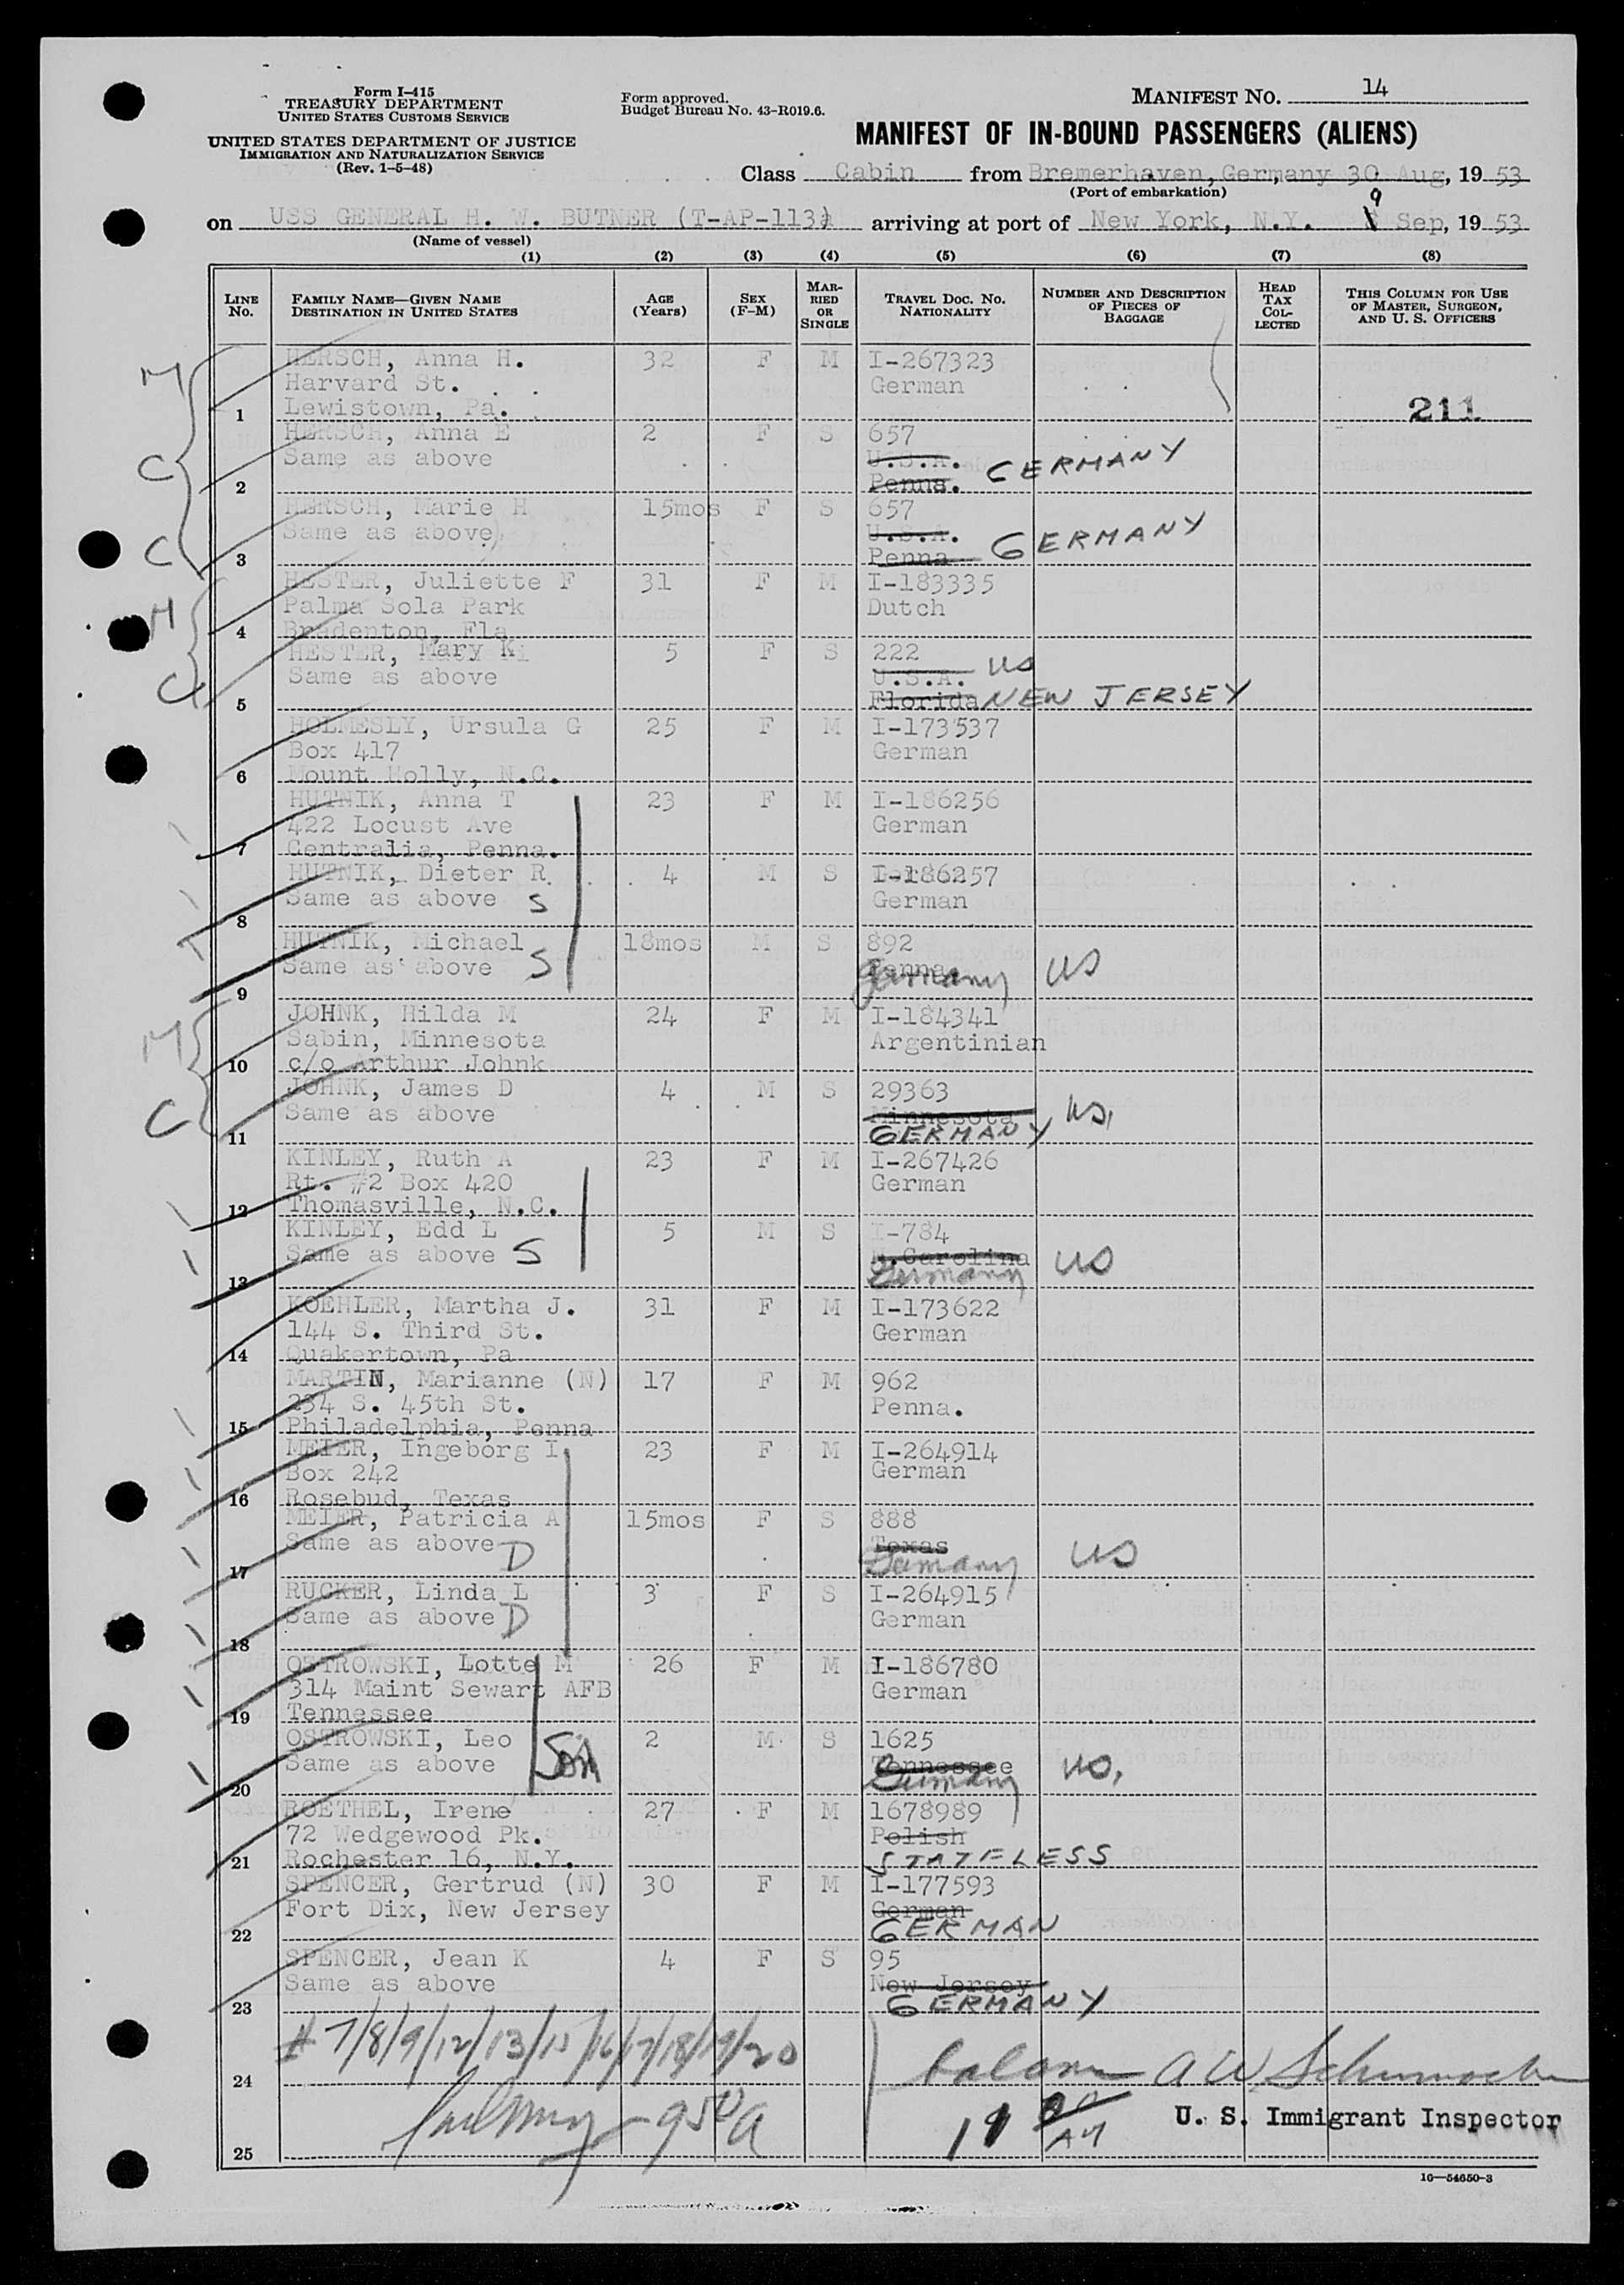 Form I-415
TREASURY DEPARTMENT
UNITED STATES CUSTOMS SERVICE
UNITED STATES DEPARTMENT OF JUSTICE
IMMIGRATION AND NATURALIZATION SERVICE
(Rev. 1-5-48)
Form approved.
Budget Bureau No. 43-R019.6.
MANIFEST NO. 14
MANIFEST OF IN-BOUND PASSENGERS (ALIENS)
Class Cabin from Bremerhaven, Germany 30 Aug, 19 53
(Port of embarkation)
on USS GENERAL H. W. BUTNER (T-AP-113) arriving at port of New York, N.Y. 9 Sep, 19 53
(Name of vessel)
(1) (2) (3) (4) (5) (6) (7) (8)
LINE No. FAMILY NAME—GIVEN NAME DESTINATION IN UNITED STATES AGE (Years) SEX (F-M) MARRIED OR SINGLE TRAVEL DOC. No. NATIONALITY NUMBER AND DESCRIPTION OF PIECES OF BAGGAGE HEAD TAX COLLECTED THIS COLUMN FOR USE OF MASTER, SURGEON, AND U. S. OFFICERS
M HERSCH, Anna H. 32 F M I-267323
Harvard St. German
1 Lewistown, Pa. 211
HERSCH, Anna E 2 F S 657
C Same as above U.S.A.
2 Penna. GERMANY
HERSCH, Marie H 15mos F S 657
C Same as above U.S.A.
3 Penna GERMANY
HESTER, Juliette F 31 F M I-183335
M Palma Sola Park Dutch
4 Bradenton, Fla
HESTER, Mary K 5 F S 222
C Same as above U.S.A. US
5 Florida NEW JERSEY
HOLMESLY, Ursula G 25 F M I-173537
Box 417 German
6 Mount Holly, N.C.
HUTNIK, Anna T 23 F M I-186256
422 Locust Ave German
7 Centralia, Penna.
HUTNIK, Dieter R 4 M S I-186257
Same as above S German
8
HUTNIK, Michael 18mos M S 892
Same as above S Penna
9 Germany US
JOHNK, Hilda M 24 F M I-184341
M Sabin, Minnesota Argentinian
10 c/o Arthur Johnk
JOHNK, James D 4 M S 29363
C Same as above Minnesota US,
11 GERMANY
KINLEY, Ruth A 23 F M I-267426
Rt. #2 Box 420 German
12 Thomasville, N.C.
KINLEY, Edd L 5 M S I-784
Same as above S N.Carolina US
13 Germany
KOEHLER, Martha J. 31 F M I-173622
144 S. Third St. German
14 Quakertown, Pa
MARTIN, Marianne (N) 17 F M 962
234 S. 45th St. Penna.
15 Philadelphia, Penna
MEIER, Ingeborg I. 23 F M I-264914
Box 242 German
16 Rosebud, Texas
MEIER, Patricia A 15mos F S 888
Same as above D Texas
17 Germany US
RUCKER, Linda L 3 F S I-264915
Same as above D German
18
OSTROWSKI, Lotte M 26 F M I-186780
314 Maint Sewart AFB German
19 Tennessee
OSTROWSKI, Leo 2 M S 1625
Same as above Son Tennessee US.
20 Germany
ROETHEL, Irene 27 F M 1678989
72 Wedgewood Pk. Polish
21 Rochester 16, N.Y. STATELESS
SPENCER, Gertrud (N) 30 F M I-177593
Fort Dix, New Jersey German
22 GERMAN
SPENCER, Jean K 4 F S 95
Same as above New Jersey
23 GERMANY
# 7/8/9/12/13/15/16/17/18/19/20
24 balance A W Schumacher
U. S. Immigrant Inspector
25
16—54650-3